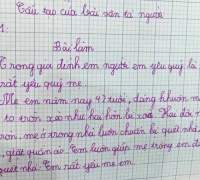 Cấu tạo của bài văn tả người
1.
Bài làm
Trong gia đình em người em yêu quý là
rất yêu quý mẹ.
Mẹ em năm nay 42 tuổi, dáng khuôn m
to tròn xoe như hai hòn bi xoe. Hai đôi m
mẹ ở trong nhà luôn chuẩn bị quét nhà,
giặt quần áo. Em luôn giúp mẹ trông em
quét nhà. Em rất yêu mẹ em.